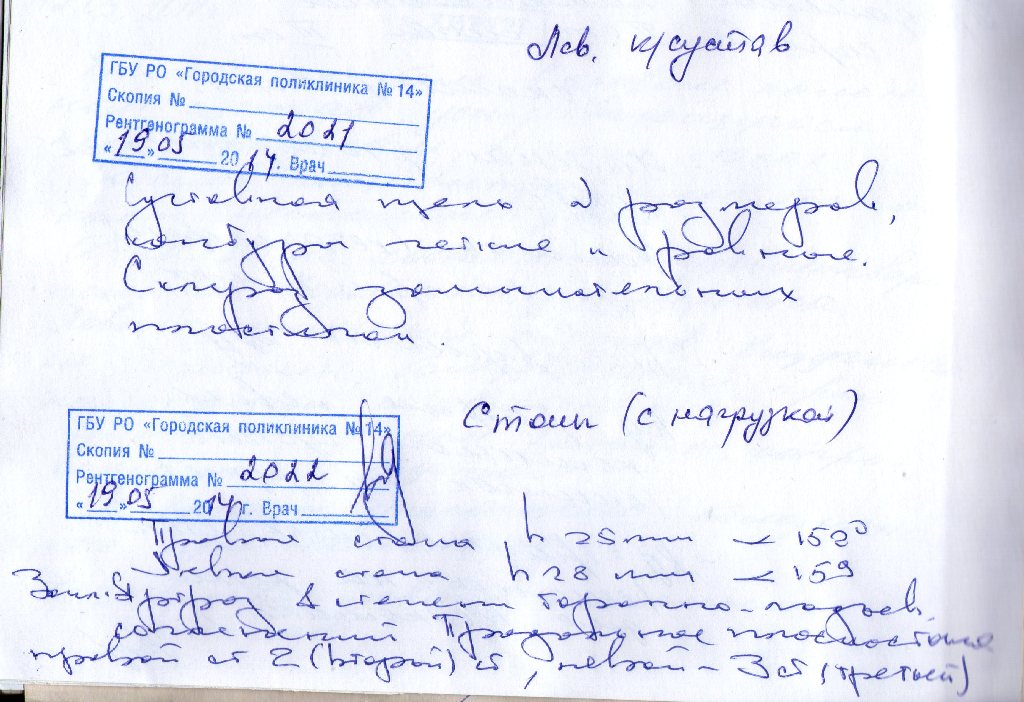 Лев. к/сустав
ГБУ РО «Городская поликлиника № 14»
Скопия №
Рентгенограмма № 2021
«19» 05 2014 г. Врач
Суставная щель N размеров,
контуры четкие и ровные.
Склероз замыкательных
пластинок.
Стопы (с нагрузкой)
ГБУ РО «Городская поликлиника № 14»
Скопия №
Рентгенограмма № 2022
«19» 05 2014 г. Врач
Правая стопа h 25 mm < 152°
Левая стопа h 28 mm < 159
Закл: Артроз 1 степени таранно-ладьев.
сочленений Продольное плоскостопие
правой ст 2 (второй) ст, левой - 3 ст (третьей)